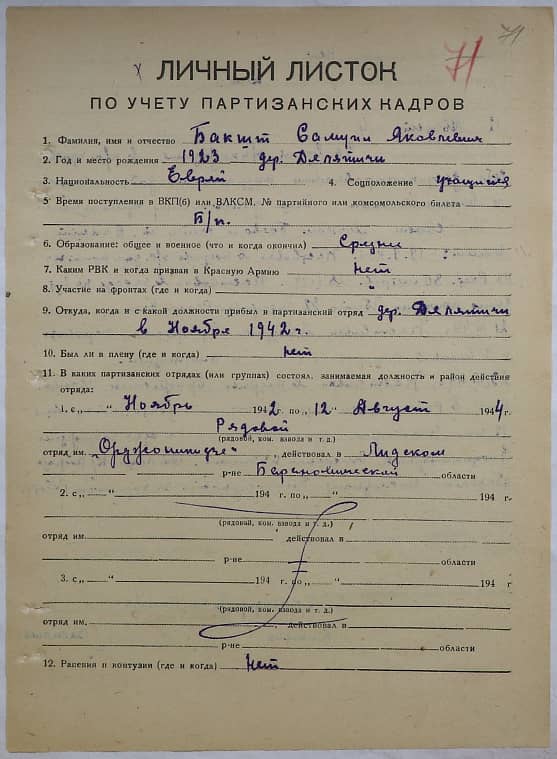 71 71
ЛИЧНЫЙ ЛИСТОК
ПО УЧЕТУ ПАРТИЗАНСКИХ КАДРОВ
1. Фамилия, имя и отчество Бакшт Самуил Яковлевич
2. Год и место рождения 1923 дер. Делятичи
3. Национальность Еврей 4. Соцположение учащийся
5 Время поступления в ВКП(б) или ВЛКСМ, № партийного или комсомольского билета
Б/п.
6. Образование: общее и военное (что и когда окончил) Средн
7. Каким РВК и когда призван в Красную Армию нет
8. Участие на фронтах (где и когда) "
9. Откуда, когда и с какой должности прибыл в партизанский отряд дер. Делятичи
в Ноября 1942 г.
10. Был ли в плену (где и когда) нет
11. В каких партизанских отрядах (или группах) состоял, занимаемая должность и район действия
отряда:
1. с „ “ Ноябрь 1942 г. по „12 “ Август 1944 г.
Рядовой
(рядовой, ком. взвода и т. д.)
отряд им. „Орджоникидзе“, действовал в Лидском
р-не Барановической области
2. с „ “ 194 г. по „ “ 194 г.
(рядовай, ком. взвода и т. д.)
отряд им. действовал в
р-не области
3. с „ “ 194 г. по „ “ 194 г
(рядовой, ком. взвода и т. д.)
отряд им. действовал в
р-не области
12. Ранения и контузии (где и когда) Нет